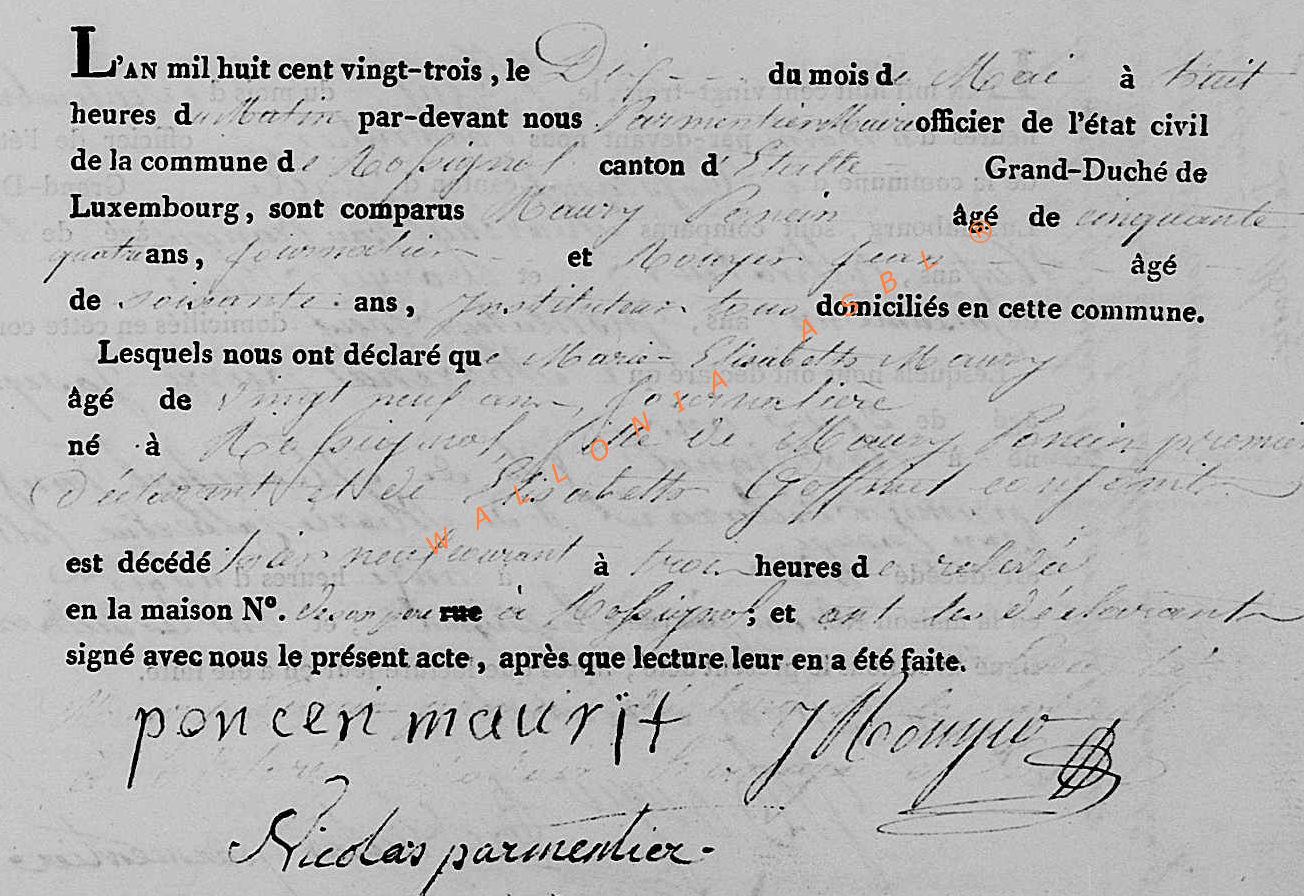 L'AN mil huit cent vingt-trois, le Dix du mois de Mai à huit
heures du Matin par-devant nous Parmentier Maire officier de l'état civil
de la commune de Rossignol canton d'Etalle Grand-Duché de
Luxembourg, sont comparus Maury Poncin âgé de cinquante
quatre ans, journalier et Rouyer Jean âgé
de soixante ans, Instituteur tous domiciliés en cette commune.
Lesquels nous ont déclaré que Marie Elisabeth Maury
âgé de vingt neuf ans, journalière
né à Rossignol, fille de Maury Poncin premier
déclarant et de Elisabeth Goffinet conjoints
est décédé hier neuf courant à trois heures de relevée
en la maison N°. rue à Rossignol; et ont les déclarants
signé avec nous le présent acte, après que lecture leur en a été faite.
poncen maurit J Rouyer
Nicolas parmentier.
WALLONIA ASBL ®